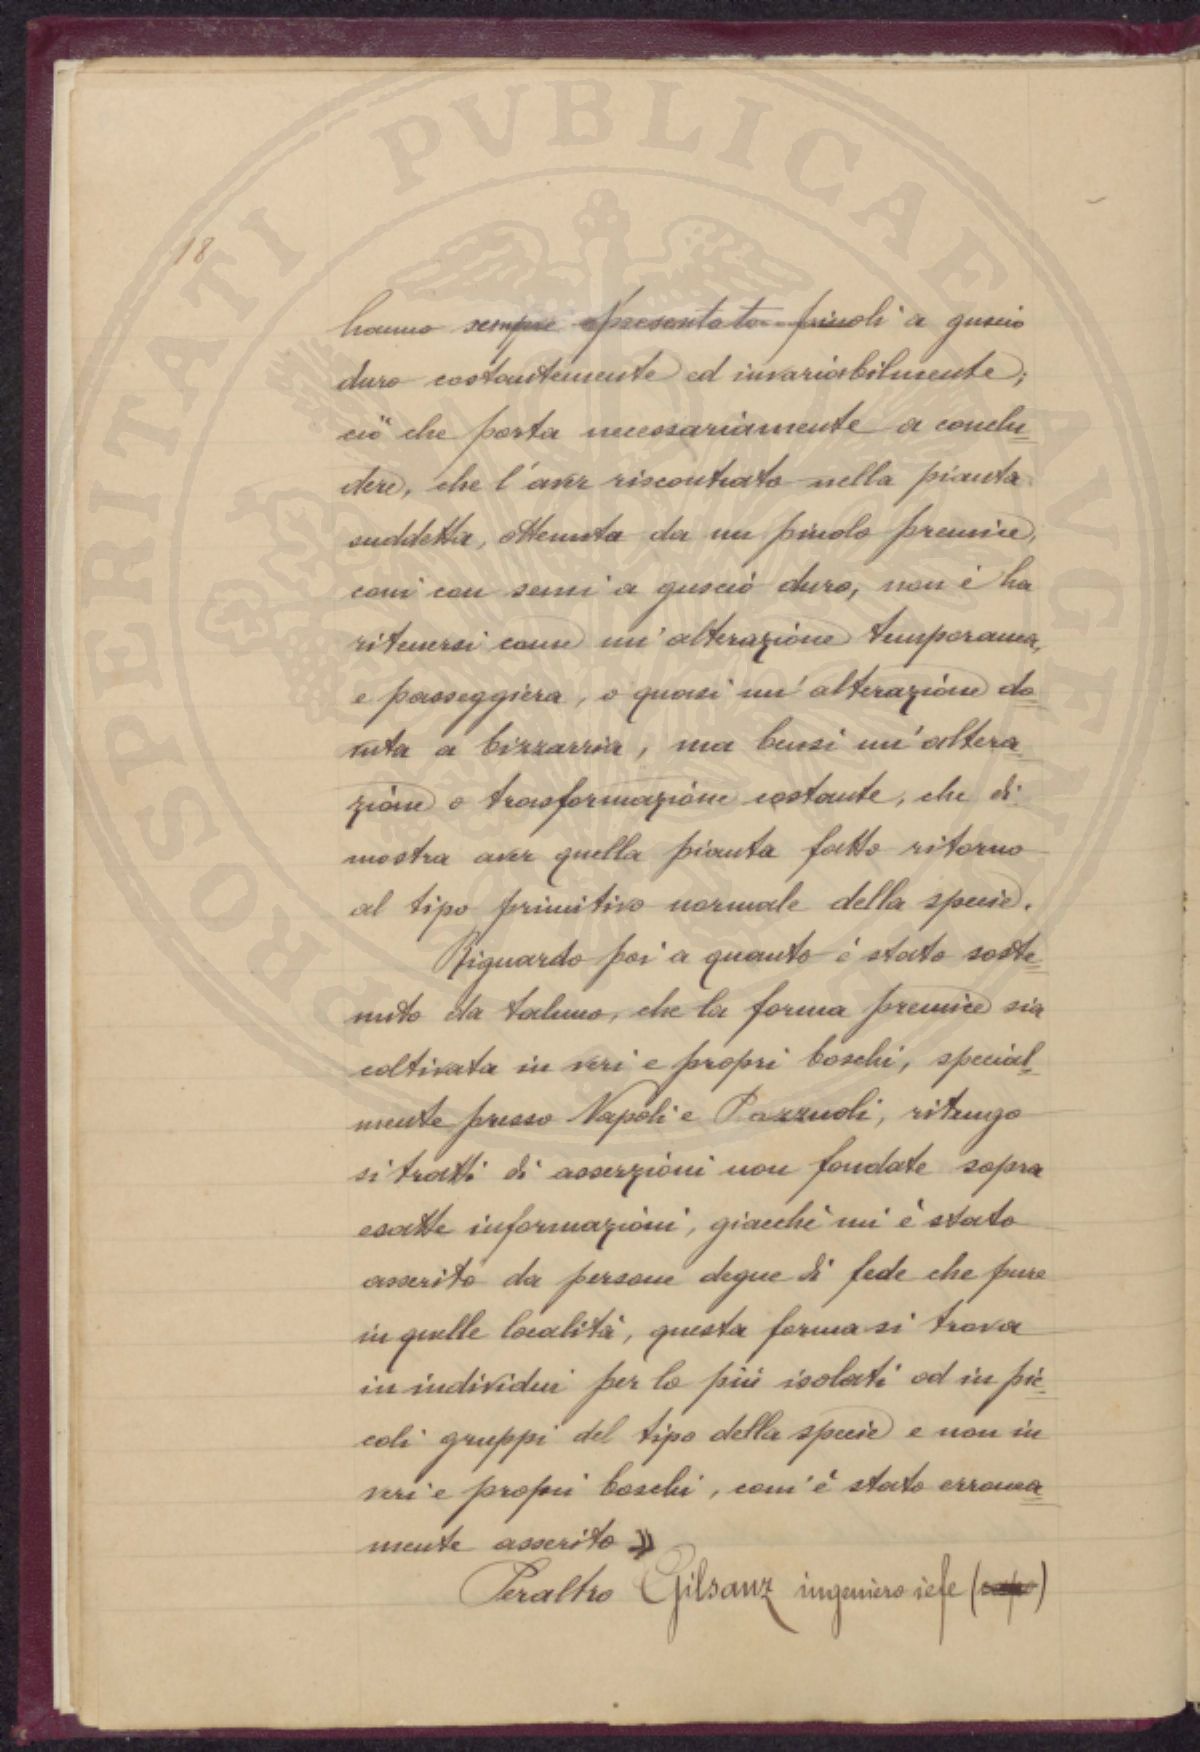 PROSPERITATI PVBLICAE AVGENDAE
18
hanno sempre presentato pinoli a guscio
duro costantemente ed invariabilmente;
ciò che porta necessariamente a conclu-
dere, che l'aver riscontrato nella pianta
suddetta, ottenuta da un pinolo premice,
coni con semi a guscio duro, non è ha
ritenersi come un'alterazione temporanea,
e passeggiera, o quasi un'alterazione do-
vuta a bizzarria, ma bensì un'altera-
zione o trasformazione costante, che di-
mostra aver quella pianta fatto ritorno
al tipo primitivo normale della specie.
Riguardo poi a quanto è stato soste-
nuto da taluno, che la forma premice sia
coltivata in veri e propri boschi, special-
mente presso Napoli e Pozzuoli, ritengo
si tratti di asserzioni non fondate sopra
esatte informazioni, giacchè mi è stato
asserito da persone degne di fede che pure
in quelle località, questa forma si trova
in individui per lo più isolati od in pic-
coli gruppi del tipo della specie e non in
veri e propri boschi, com'è stato erronea-
mente asserito »
Peraltro Gilsanz ingeniero jefe (capo)